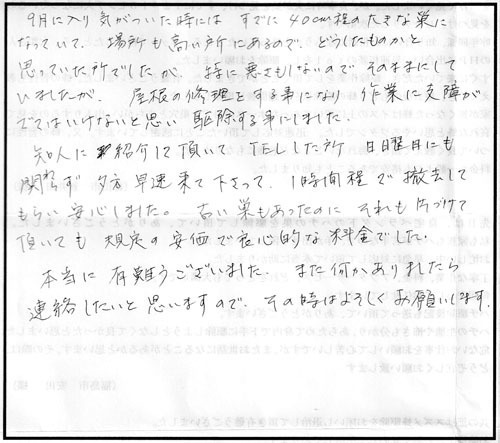 9月に入り気がついた時には すでに 40cm程の大きな巣に
なっていて、場所も高い所にあるので、どうしたものかと
思っていた所でしたが、特に悪さもしないので そのままにして
いましたが、屋根の修理とする事になり 作業に支障が
でていけないと思い 駆除する事にしました。
知人に 紹介して頂いて、TELした所 日曜日にも
関らず 夕方 早速来て下さって、1時間程で 撤去して
もらい 安心しました。古い巣もあったのに それも片づけて
頂いても 規定の安価で良心的な料金でした。
本当に 有難うございました。また何かありましたら
連絡したいと思いますので、その時はよろしくお願いします。